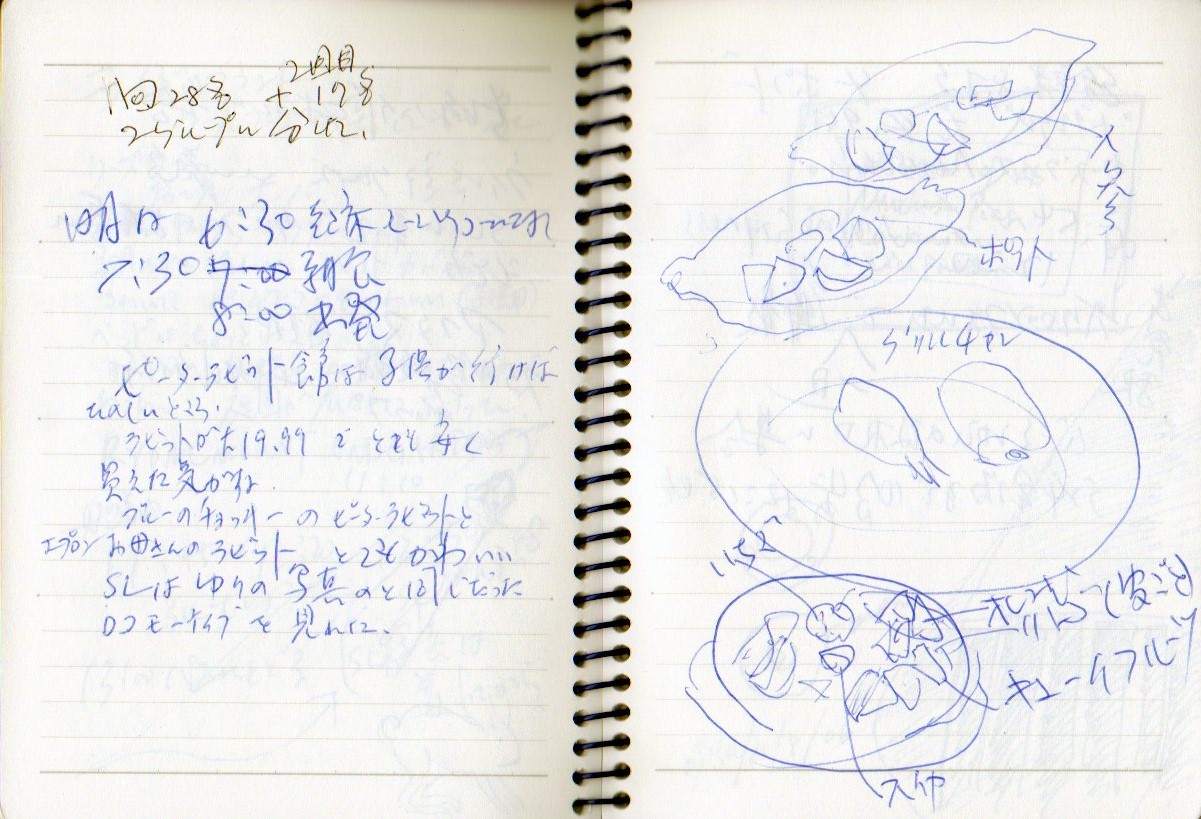 2回目
1回28名 + 17名
2グループに分けた、
明日 6:30 起床
7:30 7:00 朝食
8:00 出発
ピーターラビット館は子供が行けば
いいところ.
ラビットが大19.99でとても安く
買えた気がする.
ブルーのチョッキーのピーターラビットと
エプロンお母さんのラビット とてもかわいい
SLはゆりの写真のと同じだった
ロコモーティブを見れた.
人参
ポテト
グリルチキン
いちご
オレンジ(皮ごと)
キューイフルーツ
スイカ